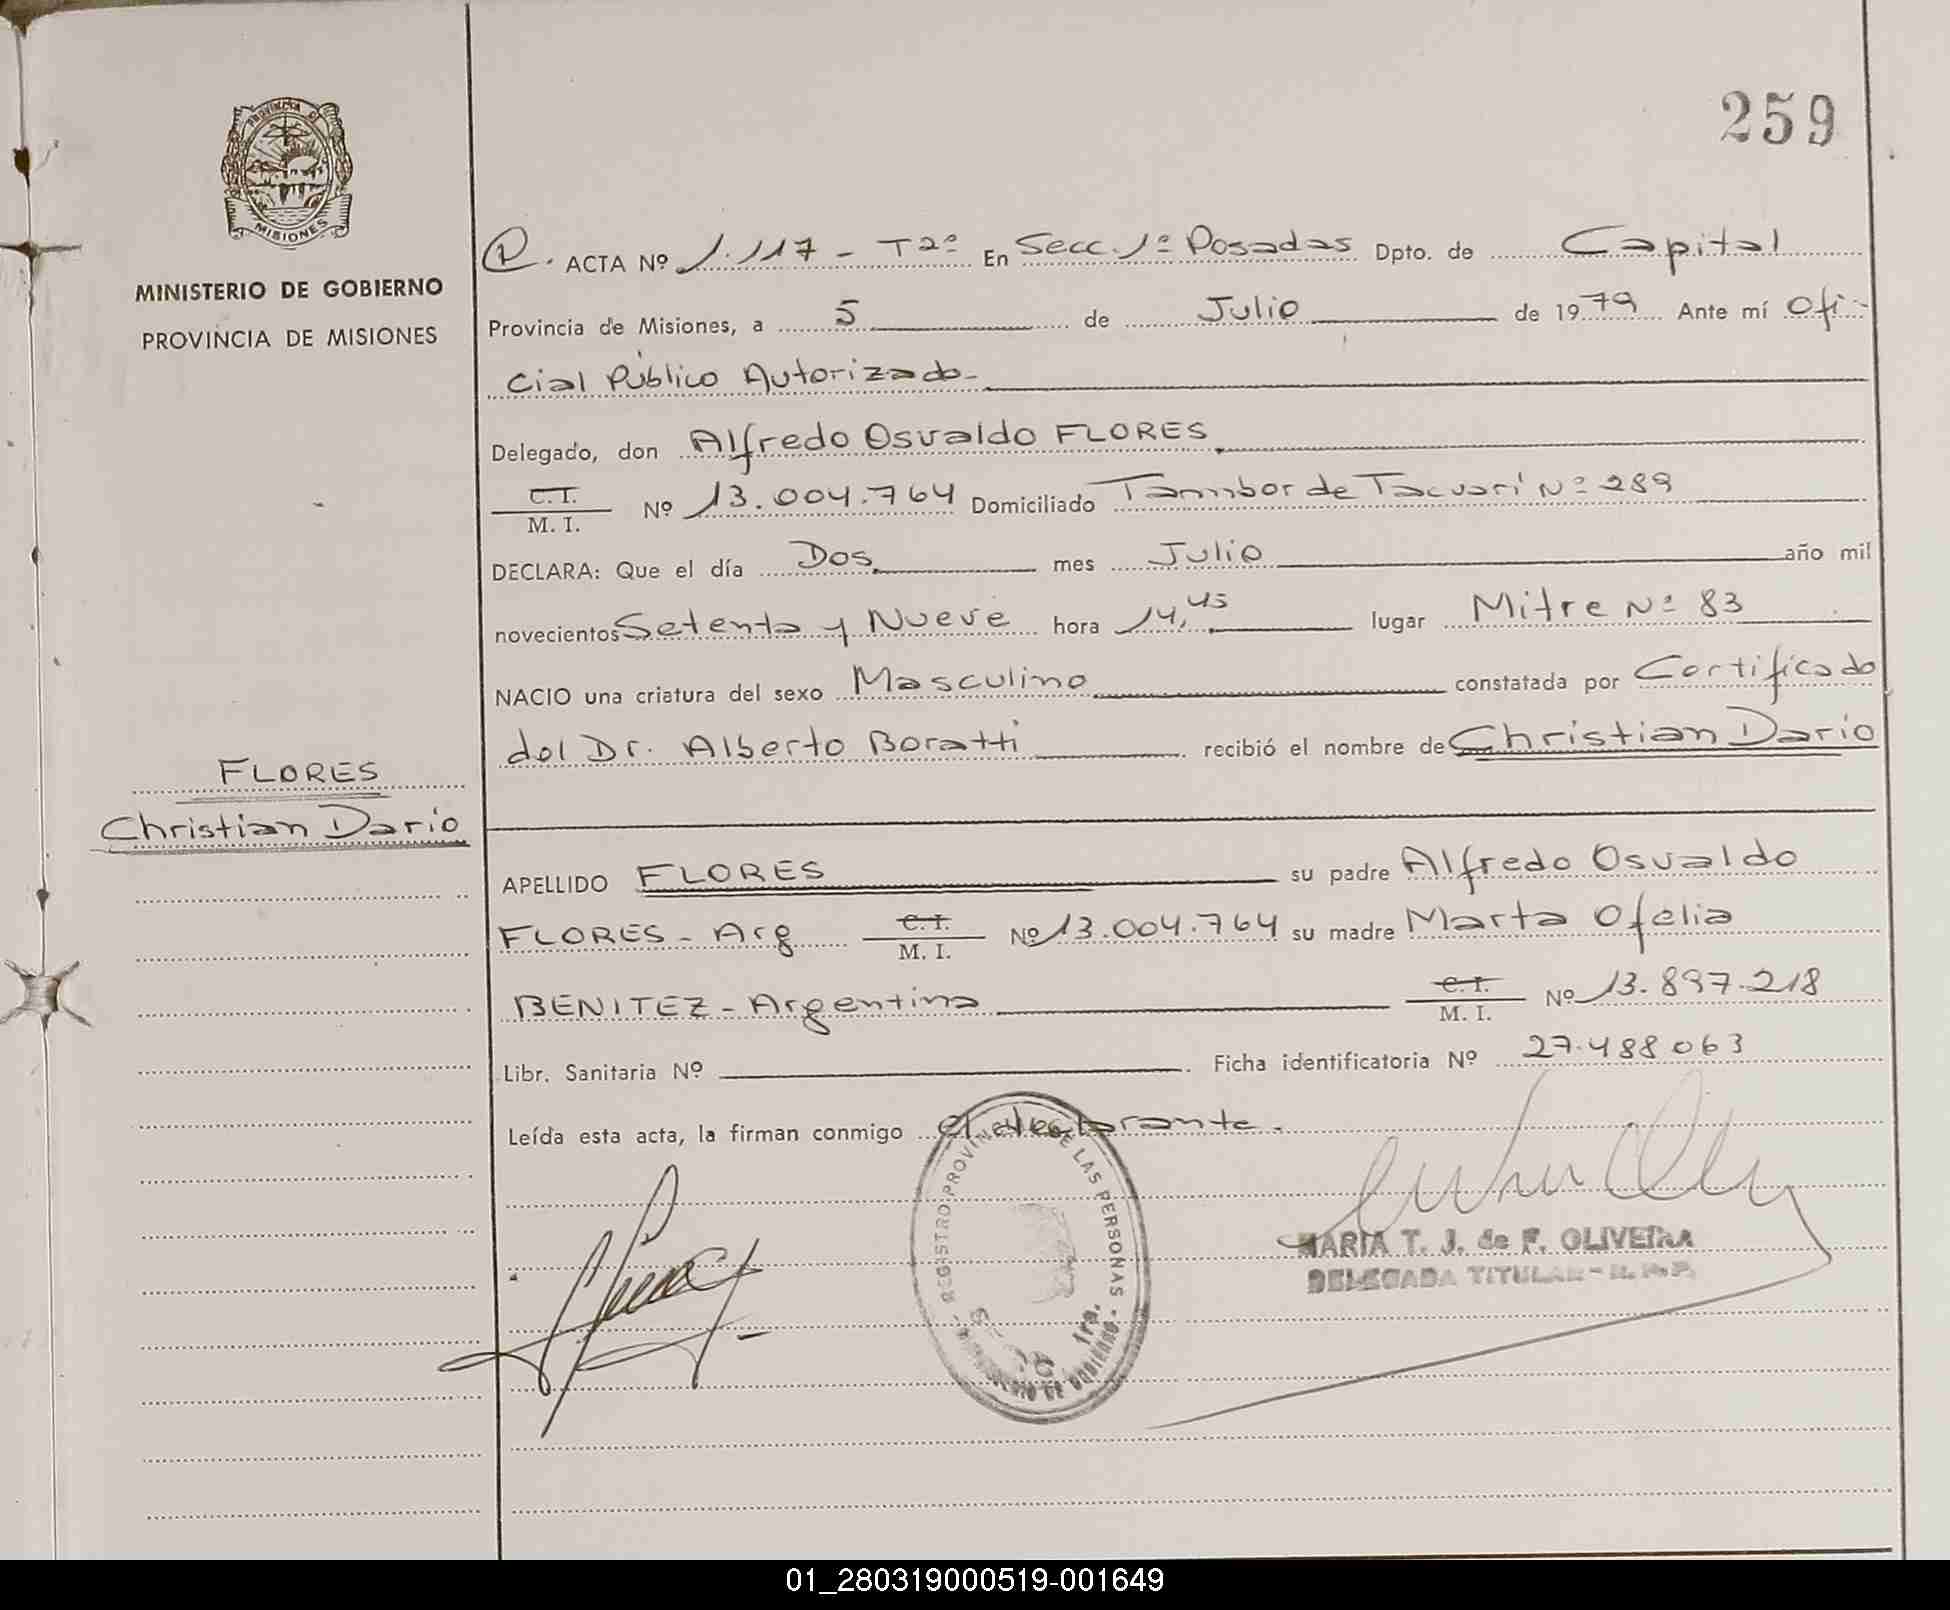 259
PROVINCIA DE
MISIONES
MINISTERIO DE GOBIERNO
PROVINCIA DE MISIONES
ACTA Nº 1.117 - T2º En Secc. 1º Posadas Dpto. de Capital
Provincia de Misiones, a 5 de Julio de 1979 Ante mí Ofi-
cial Público Autorizado-
Delegado, don Alfredo Osvaldo FLORES
C.I.
M. I. Nº 13.004.764 Domiciliado Tambor de Tacuarí Nº 289
DECLARA: Que el día Dos mes Julio año mil
novecientos Setenta y Nueve hora 14,45 lugar Mitre Nº 83
NACIO una criatura del sexo Masculino constatada por Certificado
del Dr. Alberto Boratti recibió el nombre de Christian Dario
FLORES
Christian Dario
APELLIDO FLORES su padre Alfredo Osvaldo
FLORES - Arg C.I. M. I. Nº 13.004.764 su madre Marta Ofelia
BENITEZ - Argentina C.I. M. I. Nº 13.897.218
Libr. Sanitaria Nº Ficha identificatoria Nº 27.488.063
Leída esta acta, la firman conmigo el declarante.
REGISTRO PROVINCIAL DE LAS PERSONAS
1ra.
MINISTERIO DE GOBIERNO
MARIA T. J. de F. OLIVEIRA
DELEGADA TITULAR - R. P. P.
01_280319000519-001649